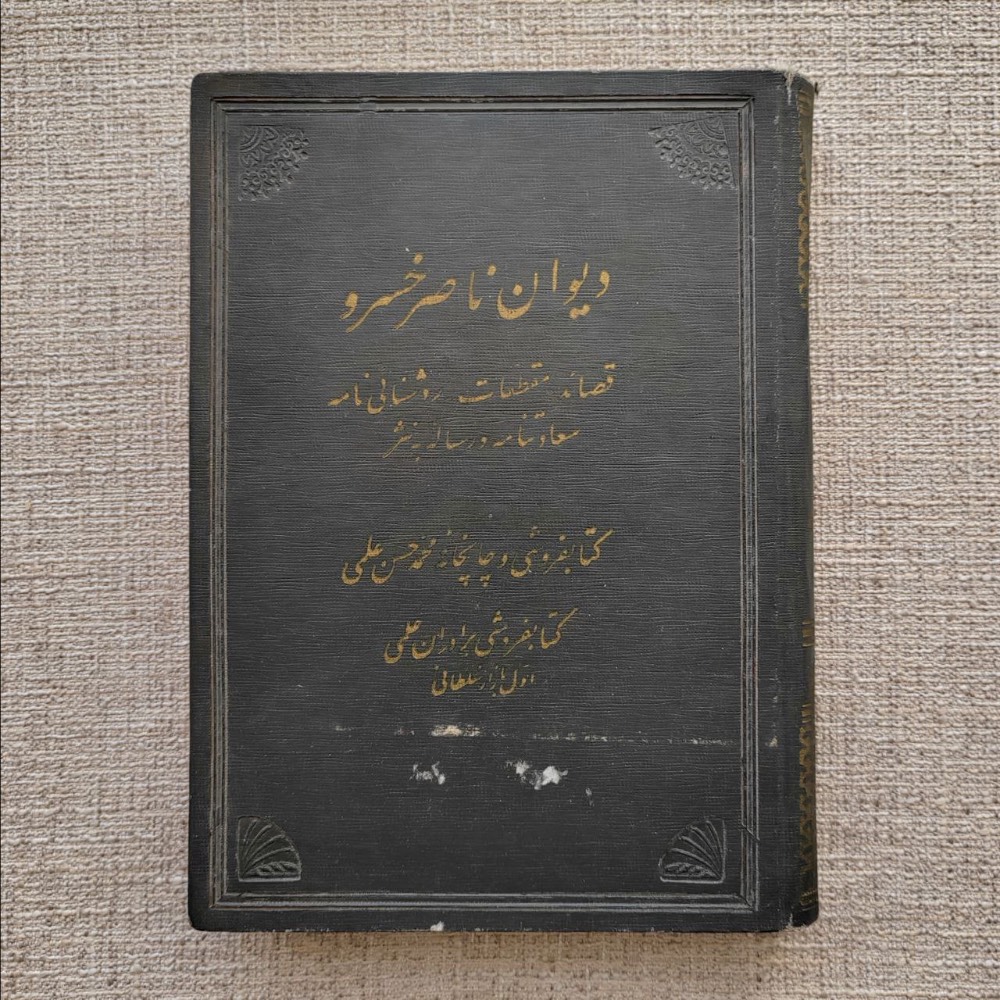 دیوان ناصر خسرو
قصائد مقطعات روشنائی نامه
سعادتنامه و رساله به نثر
کتابفروشی و چاپخانهٔ محمد حسن علمی
کتابفروشی برادران علمی
اول بازار سلطانی